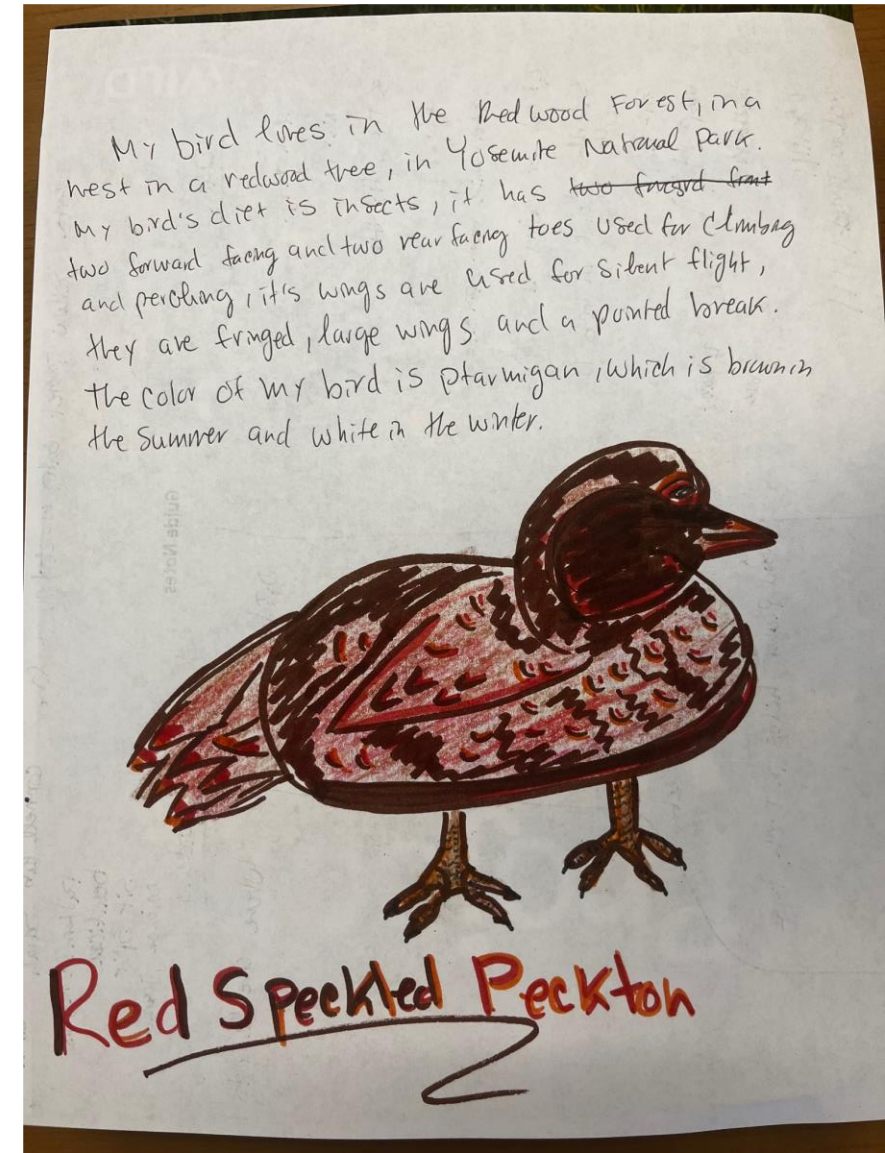 My bird lives in the Redwood Forest, in a
nest in a redwood tree, in Yosemite National Park.
My bird's diet is insects, it has two forward front
two forward facing and two rear facing toes used for climbing
and perching, it's wings are used for silent flight,
they are fringed, large wings and a pointed break.
the color of my bird is ptarmigan, which is brown in
the summer and white in the winter.
Guide Notes
Red Speckled Peckton